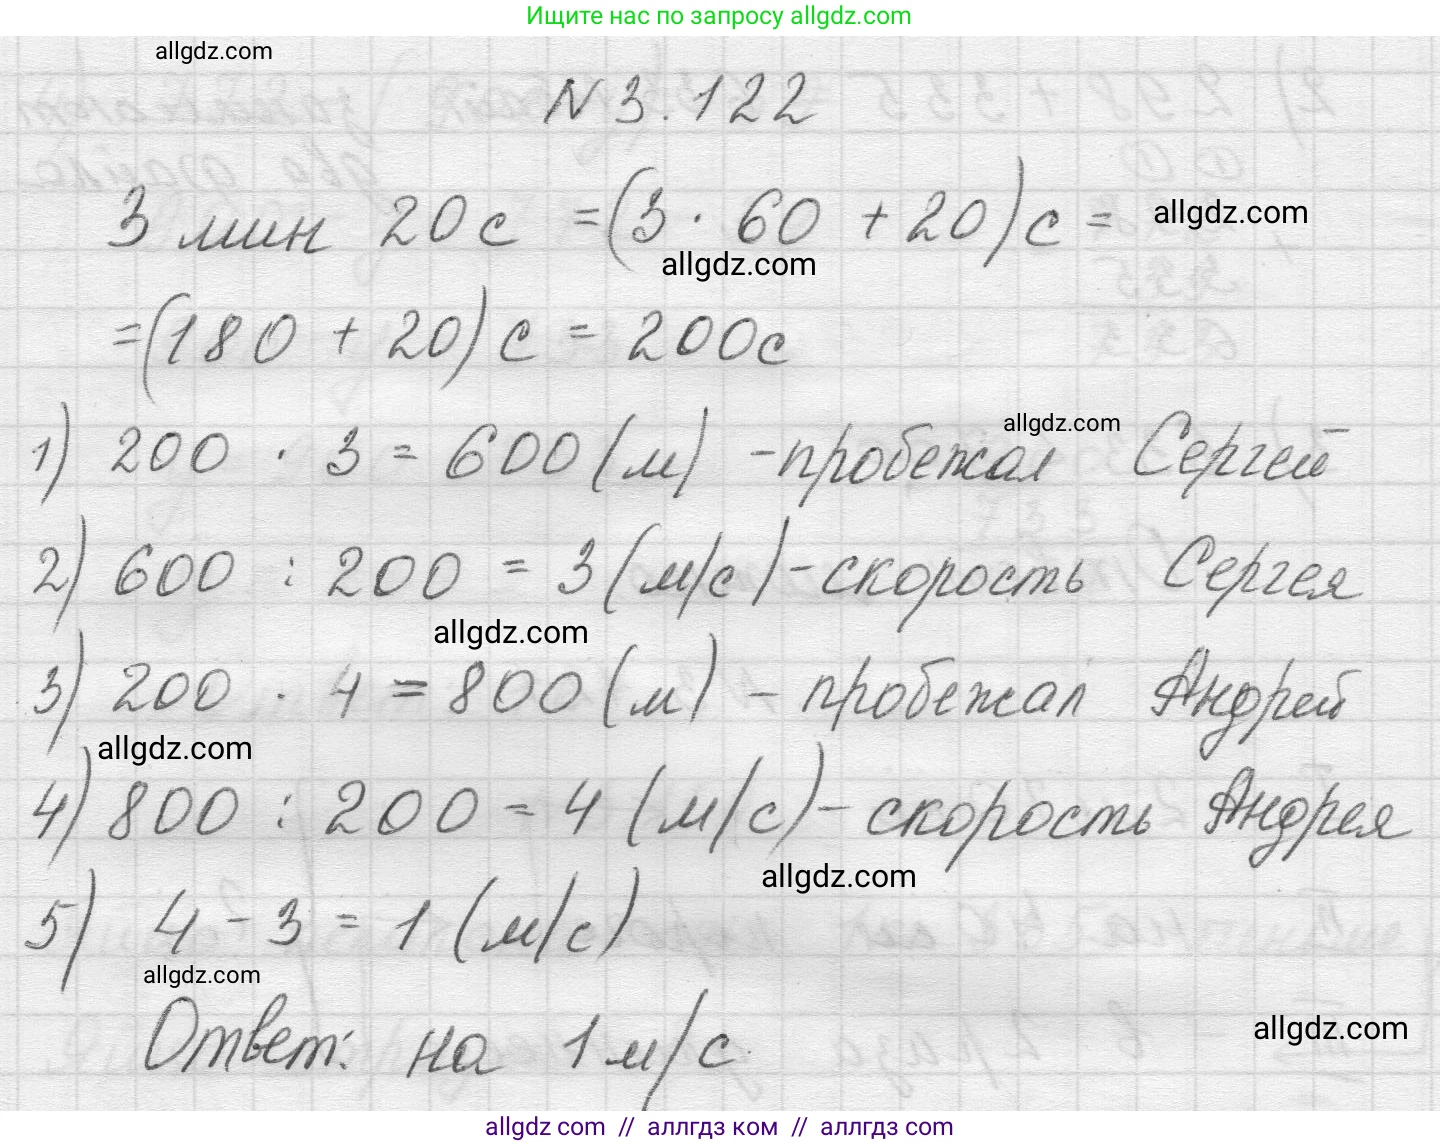 Ищите нас по запросу allgdz.com
allgdz.com
N 3.122
3 мин 20 с = (3 · 60 + 20) с =
allgdz.com
allgdz.com
= (180 + 20) с = 200с
allgdz.com
1) 200 · 3 = 600 (м) - пробежал Сергей
2) 600 : 200 = 3 (м/с) - скорость Сергея
allgdz.com
3) 200 · 4 = 800 (м) - пробежал Андрей
allgdz.com
4) 800 : 200 = 4 (м/с) - скорость Андрея
allgdz.com
5) 4 - 3 = 1 (м/с)
allgdz.com
Ответ: на 1 м/с.
allgdz.com
allgdz.com // аллгдз ком // аллгдз.com